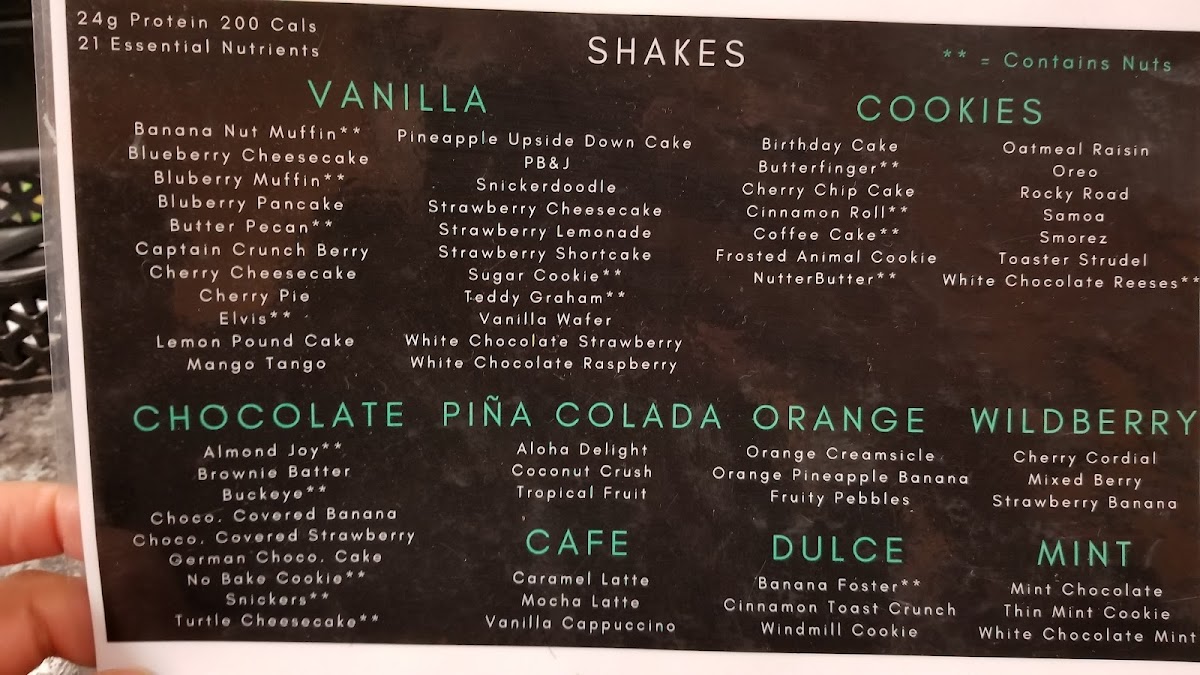 24g Protein 200 Cals
21 Essential Nutrients
SHAKES
** = Contains Nuts
VANILLA
Banana Nut Muffin**
Blueberry Cheesecake
Bluberry Muffin**
Bluberry Pancake
Butter Pecan**
Captain Crunch Berry
Cherry Cheesecake
Cherry Pie
Elvis**
Lemon Pound Cake
Mango Tango
Pineapple Upside Down Cake
PB&J
Snickerdoodle
Strawberry Cheesecake
Strawberry Lemonade
Strawberry Shortcake
Sugar Cookie**
Teddy Graham**
Vanilla Wafer
White Chocolate Strawberry
White Chocolate Raspberry
COOKIES
Birthday Cake
Butterfinger**
Cherry Chip Cake
Cinnamon Roll**
Coffee Cake**
Frosted Animal Cookie
NutterButter**
Oatmeal Raisin
Oreo
Rocky Road
Samoa
Smorez
Toaster Strudel
White Chocolate Reeses**
CHOCOLATE
Almond Joy**
Brownie Batter
Buckeye**
Choco. Covered Banana
Choco. Covered Strawberry
German Choco. Cake
No Bake Cookie**
Snickers**
Turtle Cheesecake**
PIÑA COLADA
Aloha Delight
Coconut Crush
Tropical Fruit
ORANGE
Orange Creamsicle
Orange Pineapple Banana
Fruity Pebbles
WILDBERRY
Cherry Cordial
Mixed Berry
Strawberry Banana
CAFE
Caramel Latte
Mocha Latte
Vanilla Cappuccino
DULCE
Banana Foster**
Cinnamon Toast Crunch
Windmill Cookie
MINT
Mint Chocolate
Thin Mint Cookie
White Chocolate Mint